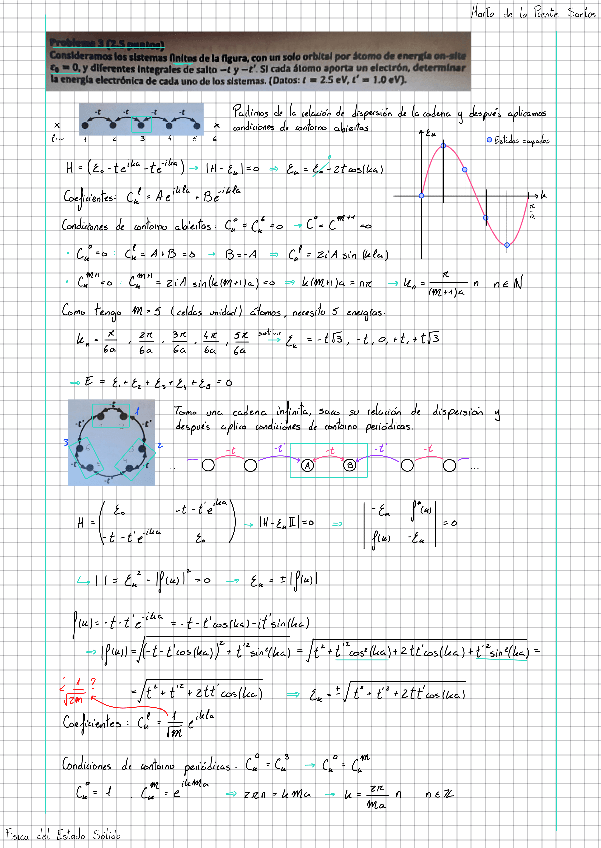 Marta de la Puente Santos
Problema 3 (2.5 puntos)
Consideramos los sistemas finitos de la figura, con un solo orbital por átomo de energía on-site
ε₀ = 0, y diferentes integrales de salto −t y −t'. Si cada átomo aporta un electrón, determinar
la energía electrónica de cada uno de los sistemas. (Datos: t = 2.5 eV, t' = 1.0 eV).
-t -t -t -t
x 1 2 3 4 5 x
6
Partimos de la relación de dispersión de la cadena y después aplicamos
condiciones de contorno abiertas
H = (ε₀ - te^{ika} - te^{-ika}) → |H - εₖ| = 0 ⇒ εₖ = ε₀ - 2t cos(ka)
εₖ
Estados ocupados
k
π
a
Coeficientes: Cₖˡ = A e^{ikla} + B e^{-ikla}
Condiciones de contorno abiertas: Cₖ⁰ = Cₖ⁶ = 0 → C⁰ = C^{M+1} = 0
· Cₖ⁰ = 0 : Cₖˡ = A + B = 0 → B = -A ⇒ Cₖˡ = 2iA sin(kla)
· Cₖ^{M+1} = 0 : Cₖ^{M+1} = 2iA sin(k(M+1)a) = 0 ⇒ k(M+1)a = nπ → kₙ = π/((M+1)a) n n∈ℕ
Como tengo M = 5 (celdas unidad) átomos, necesito 5 energías.
kₙ = π/6a , 2π/6a , 3π/6a , 4π/6a , 5π/6a → εₖ = -t√3, -t, 0, +t, +t√3
⇒ E = ε₁ + ε₂ + ε₃ + ε₄ + ε₅ = 0
1
3
2
Tomo una cadena infinita, saco su relación de dispersión y
después aplico condiciones de contorno periódicas.
... -t -t' -t -t' -t ...
A B
H = ( ε₀ -t - t'e^{ika} ; -t - t'e^{-ika} ε₀ ) → |H - εₖ𝕀| = 0 ⇒ | -εₖ f*(k) ; f(k) -εₖ | = 0
↳ | | = εₖ² - |f(k)|² = 0 → εₖ = ±|f(k)|
f(k) = -t - t'e^{-ika} = -t - t'cos(ka) - it'sin(ka)
⇒ |f(k)| = √((-t - t'cos(ka))² + t'²sin²(ka)) = √(t² + t'²cos²(ka) + 2tt'cos(ka) + t'²sin²(ka)) =
= √(t² + t'² + 2tt'cos(ka)) ⇒ εₖ = ±√(t² + t'² + 2tt'cos(ka))
¿ 1/√2M ?
Coeficientes: Cₖˡ = 1/√M e^{ikla}
Condiciones de contorno periódicas: Cₖ⁰ = Cₖ³ → Cₖ⁰ = Cₖᴹ
Cₖ⁰ = 1 . Cₖᴹ = e^{ikMa} ⇒ 2πn = kMa → k = 2π/Ma n n∈ℤ
Física del Estado Sólido